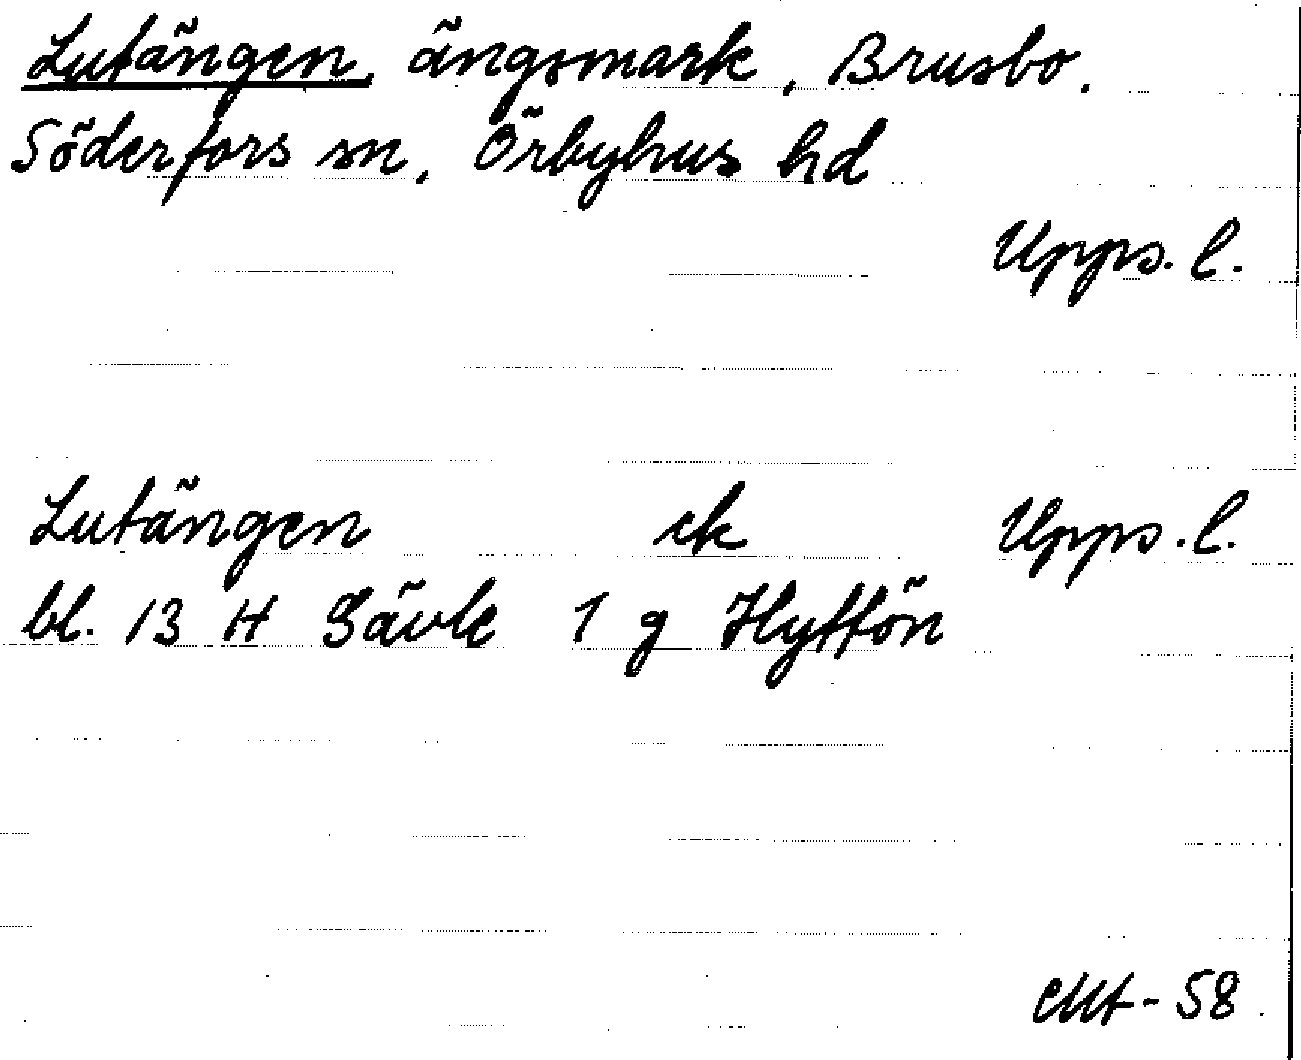 Lutängen, ängsmark, Brusbo.
Söderfors sn, Örbyhus hd
Upps. l.
Lutängen ek Upps. l.
bl. 13 H Gävle 1 g Hyttön
-58